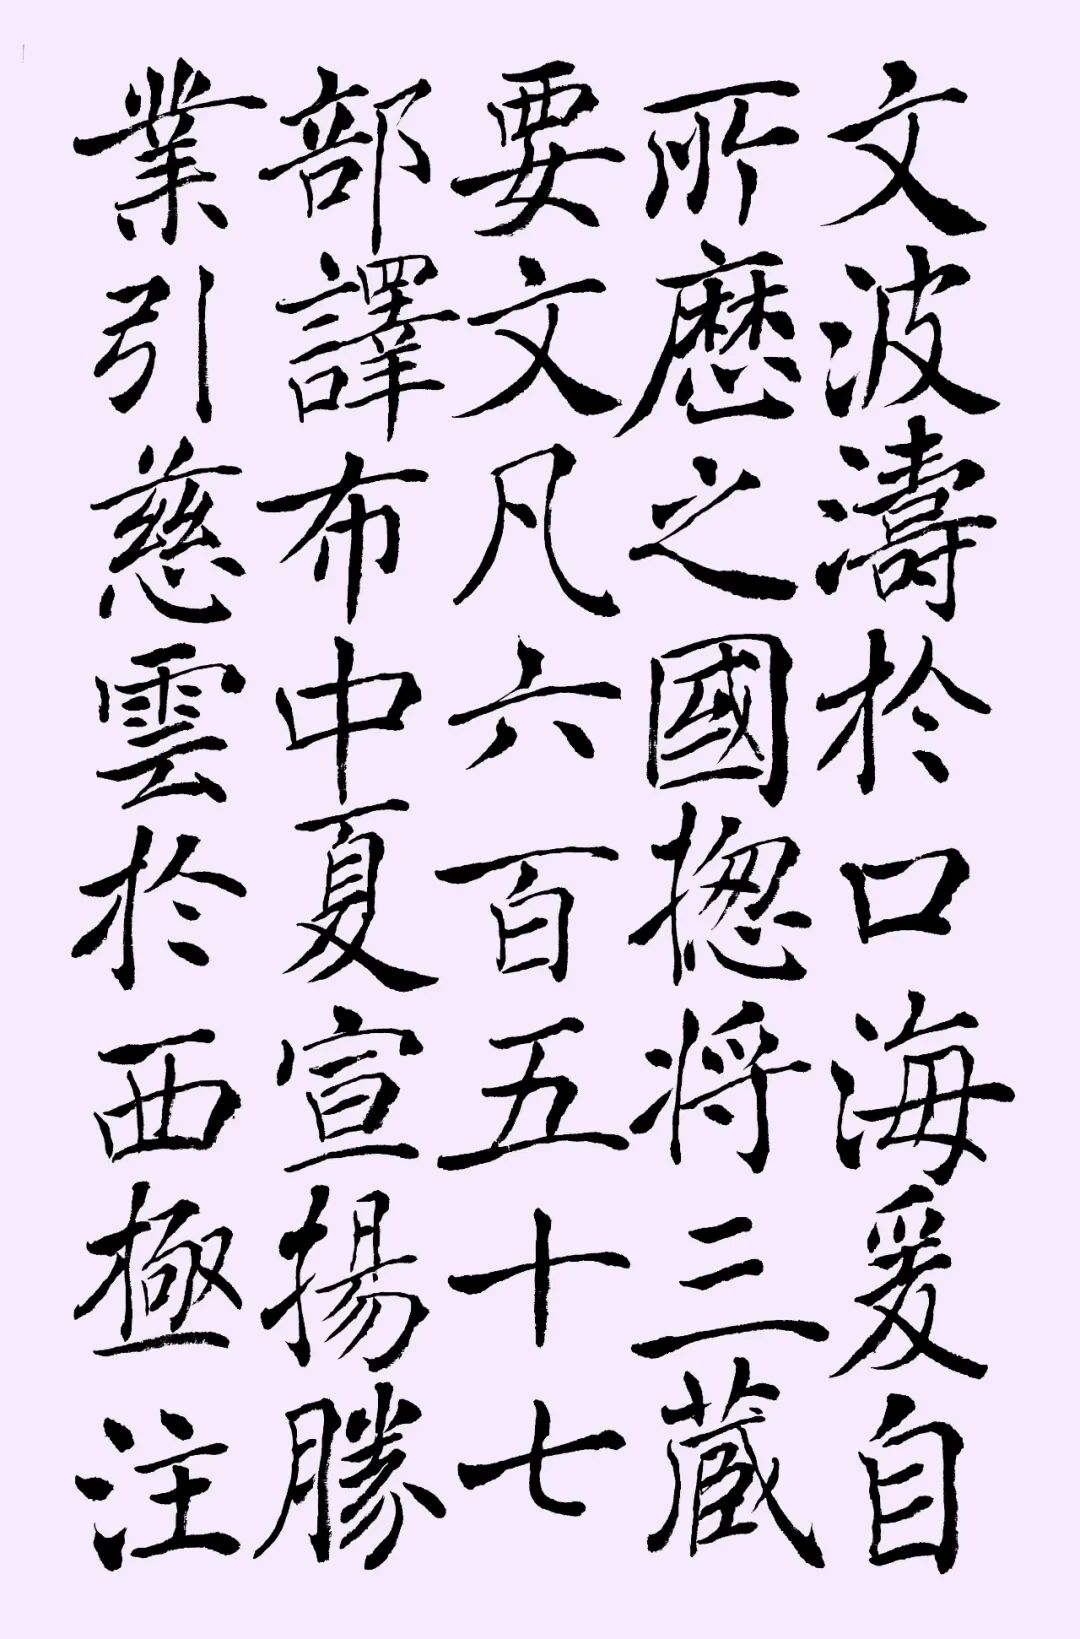 文波濤於口海爰自
所歷之國揔将三蔵
要文凡六百五十七
部譯布中夏宣揚勝
業引慈雲於西極注